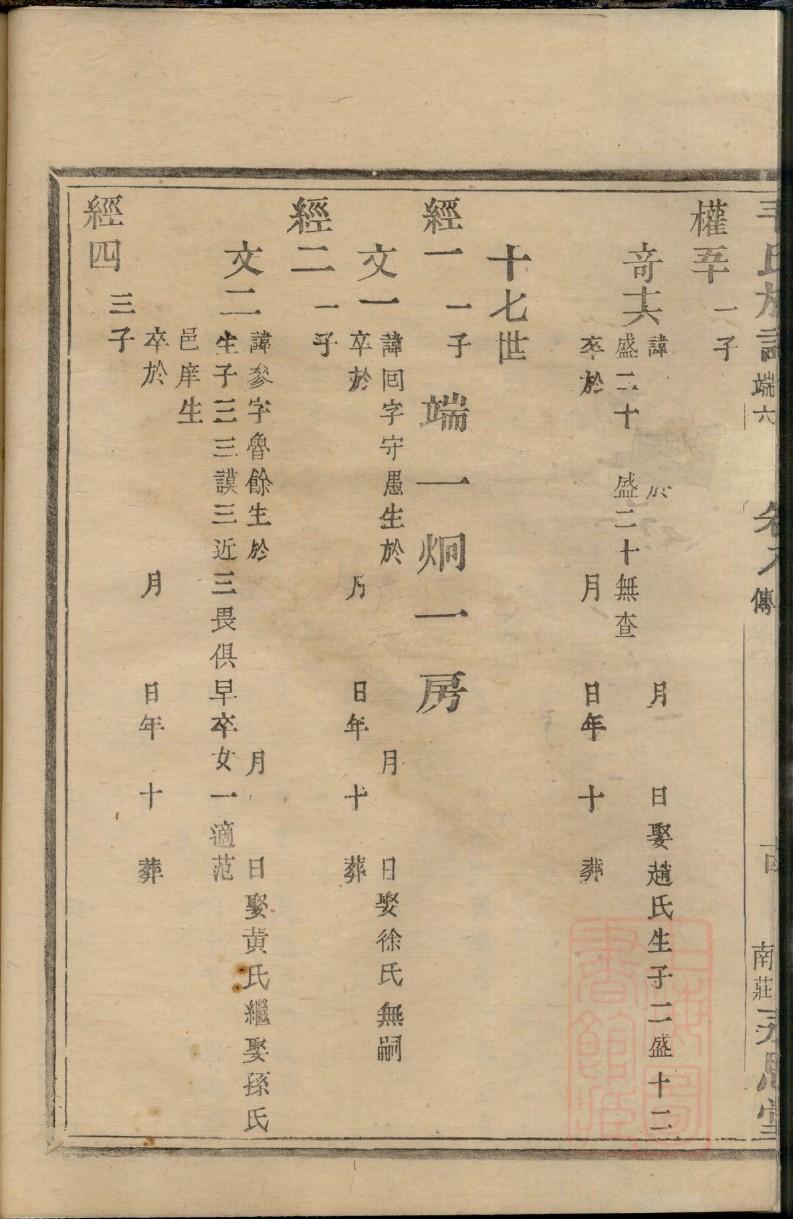 氏族譜 端六 傳 南莊 永思堂
權 一子
奇 諱 於 月 日娶趙氏生子二盛十二
盛二十 盛二十無查
卒於 月 日年 十 葬
十七世
經一 一子 端一炯一房
文一 諱回字守愚生於 月 日娶徐氏無嗣
卒於 月 日年 十 葬
經二 一子
文二 諱參字魯餘生於 月 日娶黃氏繼娶孫氏
生子三三謨三近三畏俱早卒女一適范
邑庠生
卒於 月 日年 十 葬
經四 三子